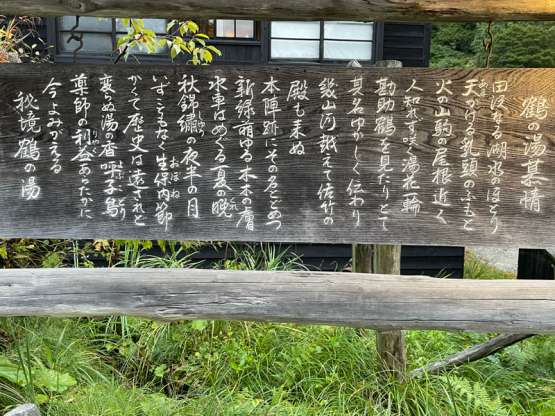 鶴の湯慕情
田沢なる湖水のほとり
天かける乳頭のふもと
火の山駒の尾根近く
人知れず咲く湯花一輪
勘助鶴を見たりとて
其名ゆかしく伝わり
幾山河越えて佐竹の
殿も来ぬ
本陣跡にその名とどめつ
新緑萌ゆる木木の露
水車はめぐる夏の晩
秋錦繡の夜半の月
いずこもなく生保内節
かくて歴史は遠されど
変らぬ湯の香呼子鳥
薬師の利益あらたかに
今よみがえる
秘境鶴の湯